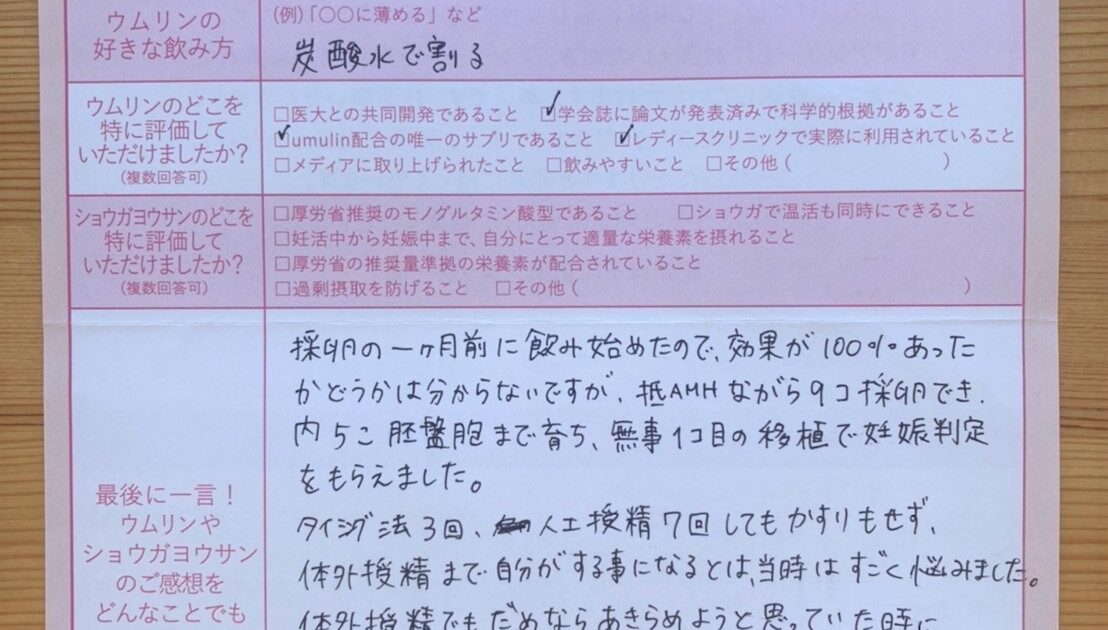 ウムリンの
好きな飲み方
(例)「〇〇に薄める」など
炭酸水で割る
ウムリンのどこを
特に評価して
いただけましたか?
(複数回答可)
□医大との共同開発であること ☑学会誌に論文が発表済みで科学的根拠があること
☑umulin配合の唯一のサプリであること ☑レディースクリニックで実際に利用されていること
□メディアに取り上げられたこと □飲みやすいこと □その他( )
ショウガヨウサンのどこを
特に評価して
いただけましたか?
(複数回答可)
□厚労省推奨のモノグルタミン酸型であること □ショウガで温活も同時にできること
□妊活中から妊娠中まで、自分にとって適量な栄養素を摂れること
□厚労省の推奨量準拠の栄養素が配合されていること
□過剰摂取を防げること □その他( )
最後に一言!
ウムリンや
ショウガヨウサン
のご感想を
どんなことでも
採卵の一ヶ月前に飲み始めたので、効果が100%あった
かどうかは分からないですが、抵AMHながら9コ採卵でき、
内5こ胚盤胞まで育ち、無事1コ目の移植で妊娠判定
をもらえました。
タイミング法3回、人工授精7回してもかすりもせず、
体外授精まで自分がする事になるとは、当時はすごく悩みました。
体外授精でもだめならあきらめようと思っていた時に